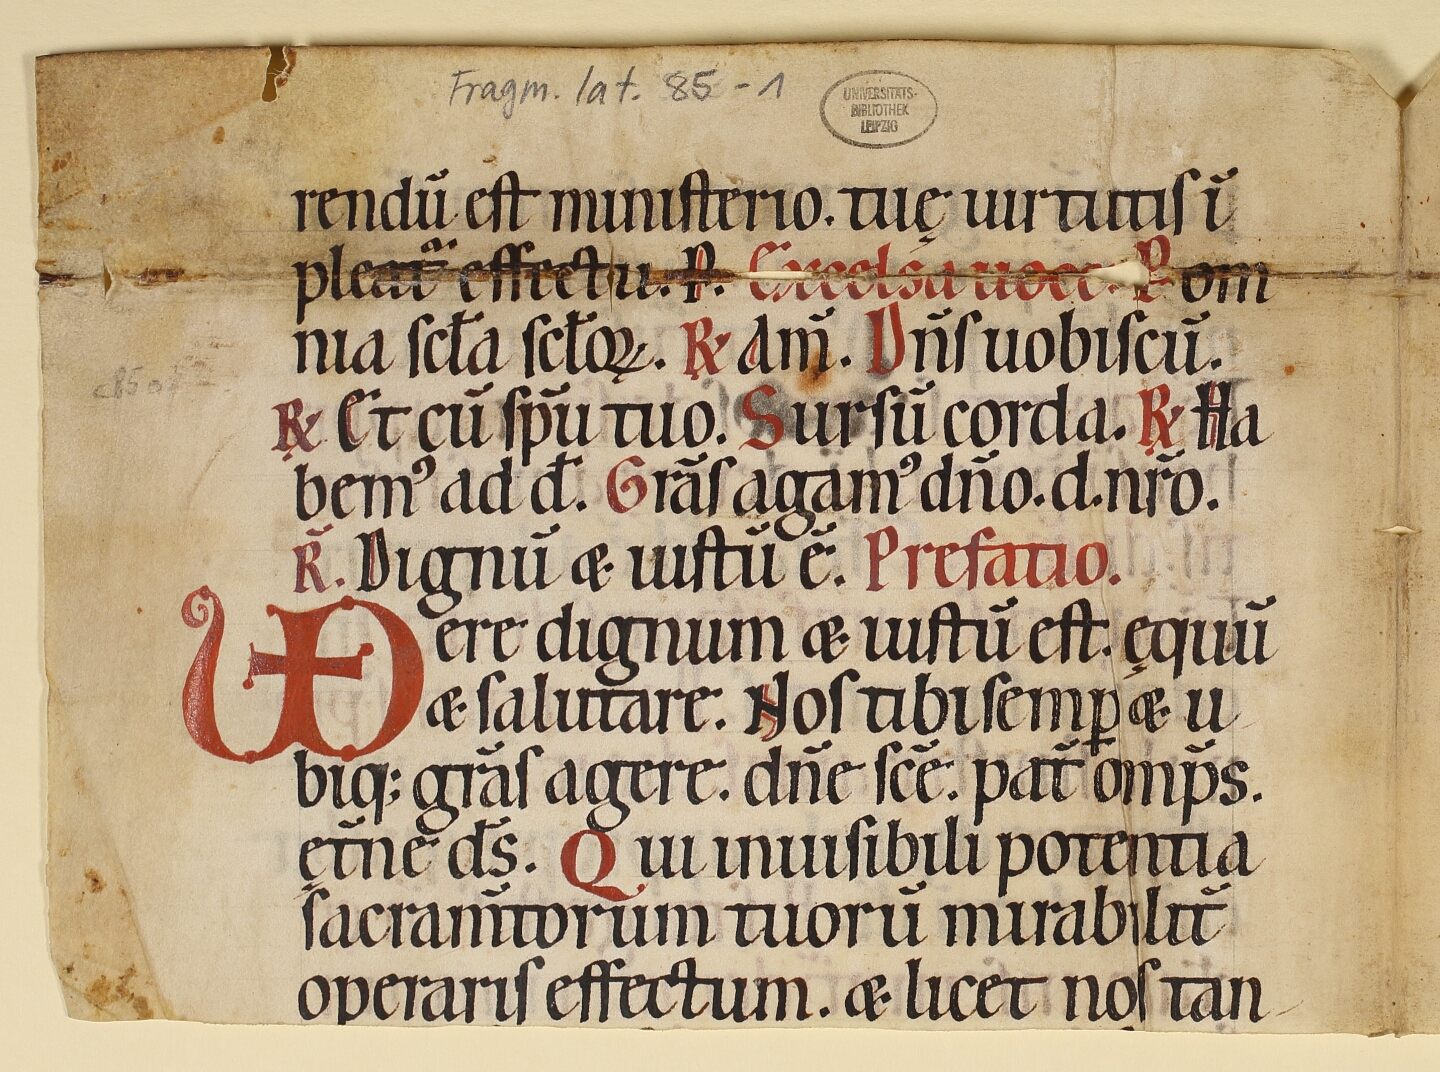 Fragm. lat. 85-1
UNIVERSITÄTS-
BIBLIOTHEK
LEIPZIG
rendū est ministerio. tuę uirtutis ī
pleat᷑ effectu. P. Excelsa uoce. P om
nia scła scłoꝝ. ℟ Am̄. Dn̄s uobiscū.
℟ Et cū sp̄u tuo. Sursū corda. ℟ Ha
bemꝰ ad d̄. Grās agamꝰ dn̄o. d. nr̄o.
R̄. Dignū & iustū ē. Prefatio.
Vere dignum & iustū est. ęquū
& salutare. Nos tibi semꝑ & u
biq; grās agere. dn̄e sc̄e. pat̄ omp̄s.
ęt̄ne d̄s. Qui inuisibili potentia
sacram̄torum tuorū mirabilit̄
operaris effectum. & licet nos tan